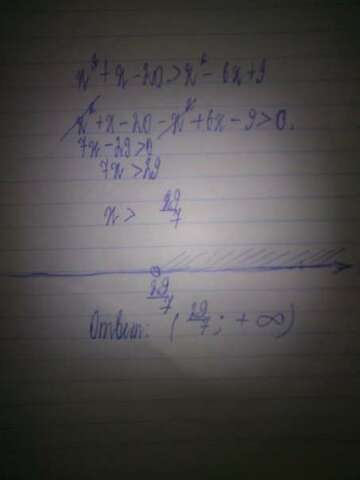 x² + x - 20 > x² - 6x + 9
x² + x - 20 - x² + 6x - 9 > 0.
7x - 29 > 0
7x > 29
x > 29/7
29/7
Ответ: (29/7; +∞)